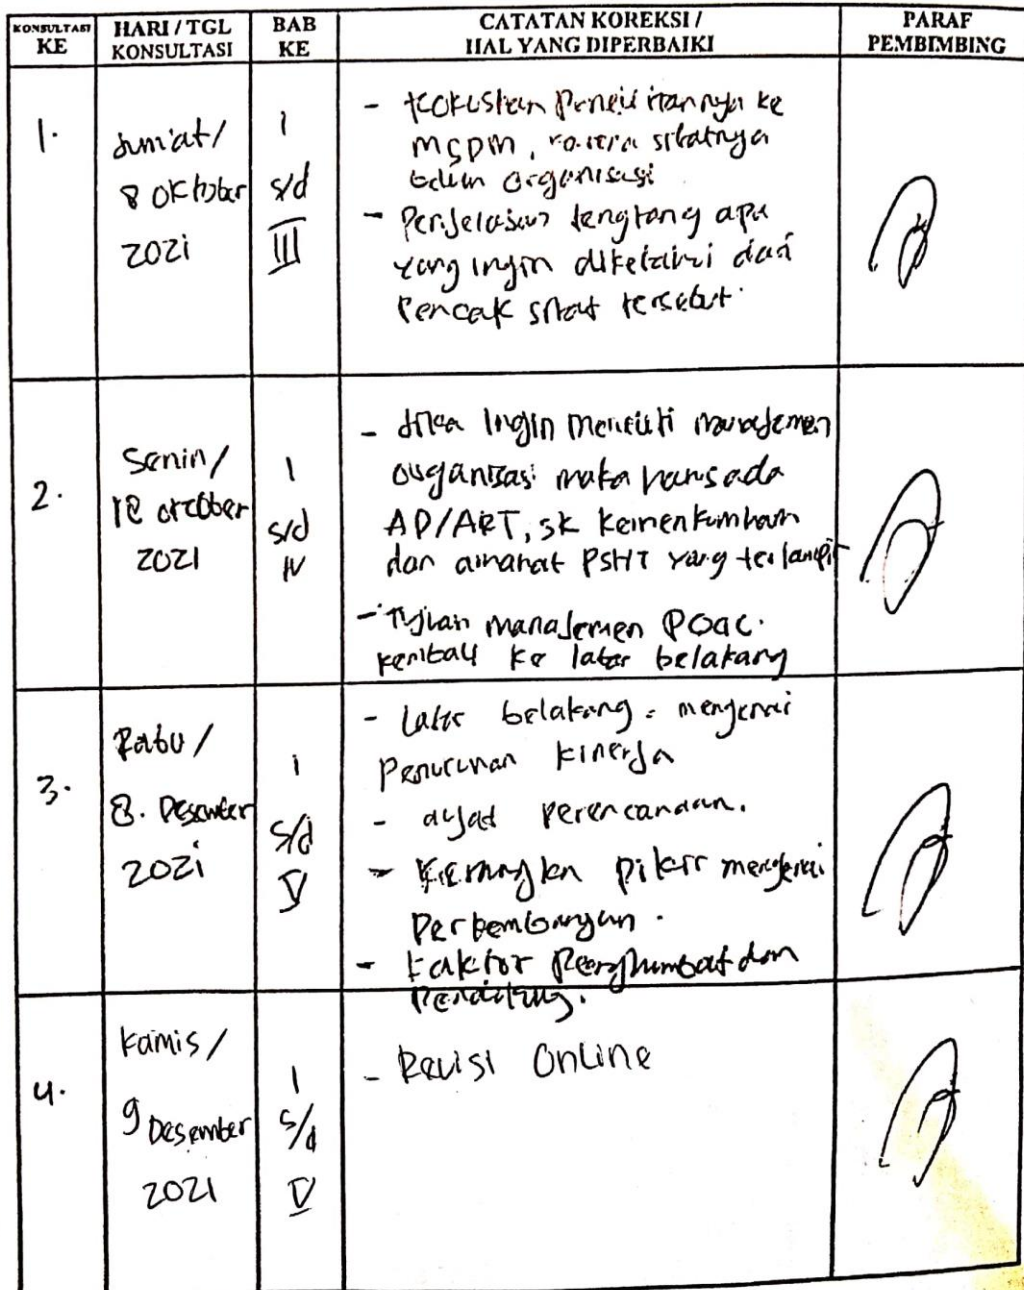 KONSULTASI KE
HARI / TGL KONSULTASI
BAB KE
CATATAN KOREKSI / HAL YANG DIPERBAIKI
PARAF PEMBIMBING
1.
Jum'at/
8 Oktober
2021
I
s/d
III
- Fokuskan Penelitiannya ke
MSDM, karena sifatnya
belum organisasi
- Penjelasan tengtang apa
yang ingin diketahui dari
Pencak silat tersebut.
2.
Senin/
18 oktober
2021
I
s/d
IV
- Jika Ingin Meneliti manajemen
organisasi maka harus ada
AD/ART, SK Kemenkumham
dan amanat PSHT yang terlampir
- Tujuan manajemen POAC.
kembali ke latar belakang
3.
Rabu /
8. Desember
2021
I
s/d
V
- Latar belakang = mengenai
Penurunan Kinerja
- ayat Perencanaan.
- Kerangka pikir mengenai
Perkembangan.
- Faktor Penghambat dan
Pendukung.
4.
Kamis /
9 Desember
2021
I
s/d
V
- Revisi Online